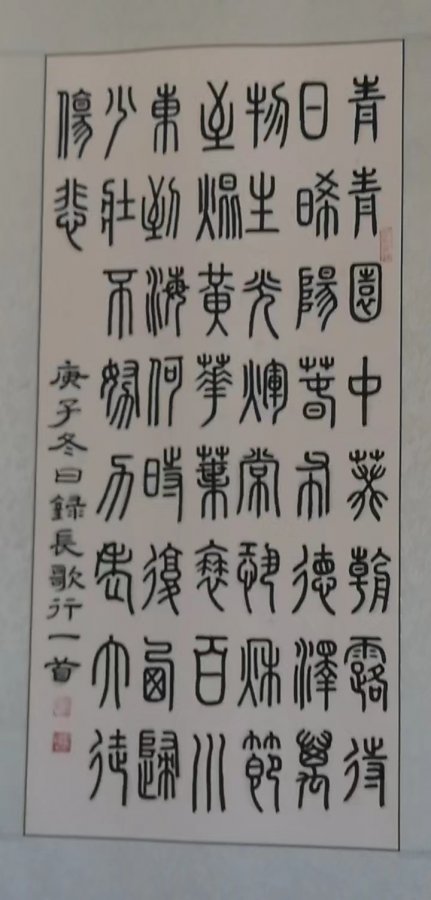 青青園中葵朝露待
日晞陽春布德澤萬
物生光煇常恐秋節
至焜黃華葉衰百川
東到海何時復西歸
少壯不努力老大徒
傷悲
庚子冬日錄長歌行一首